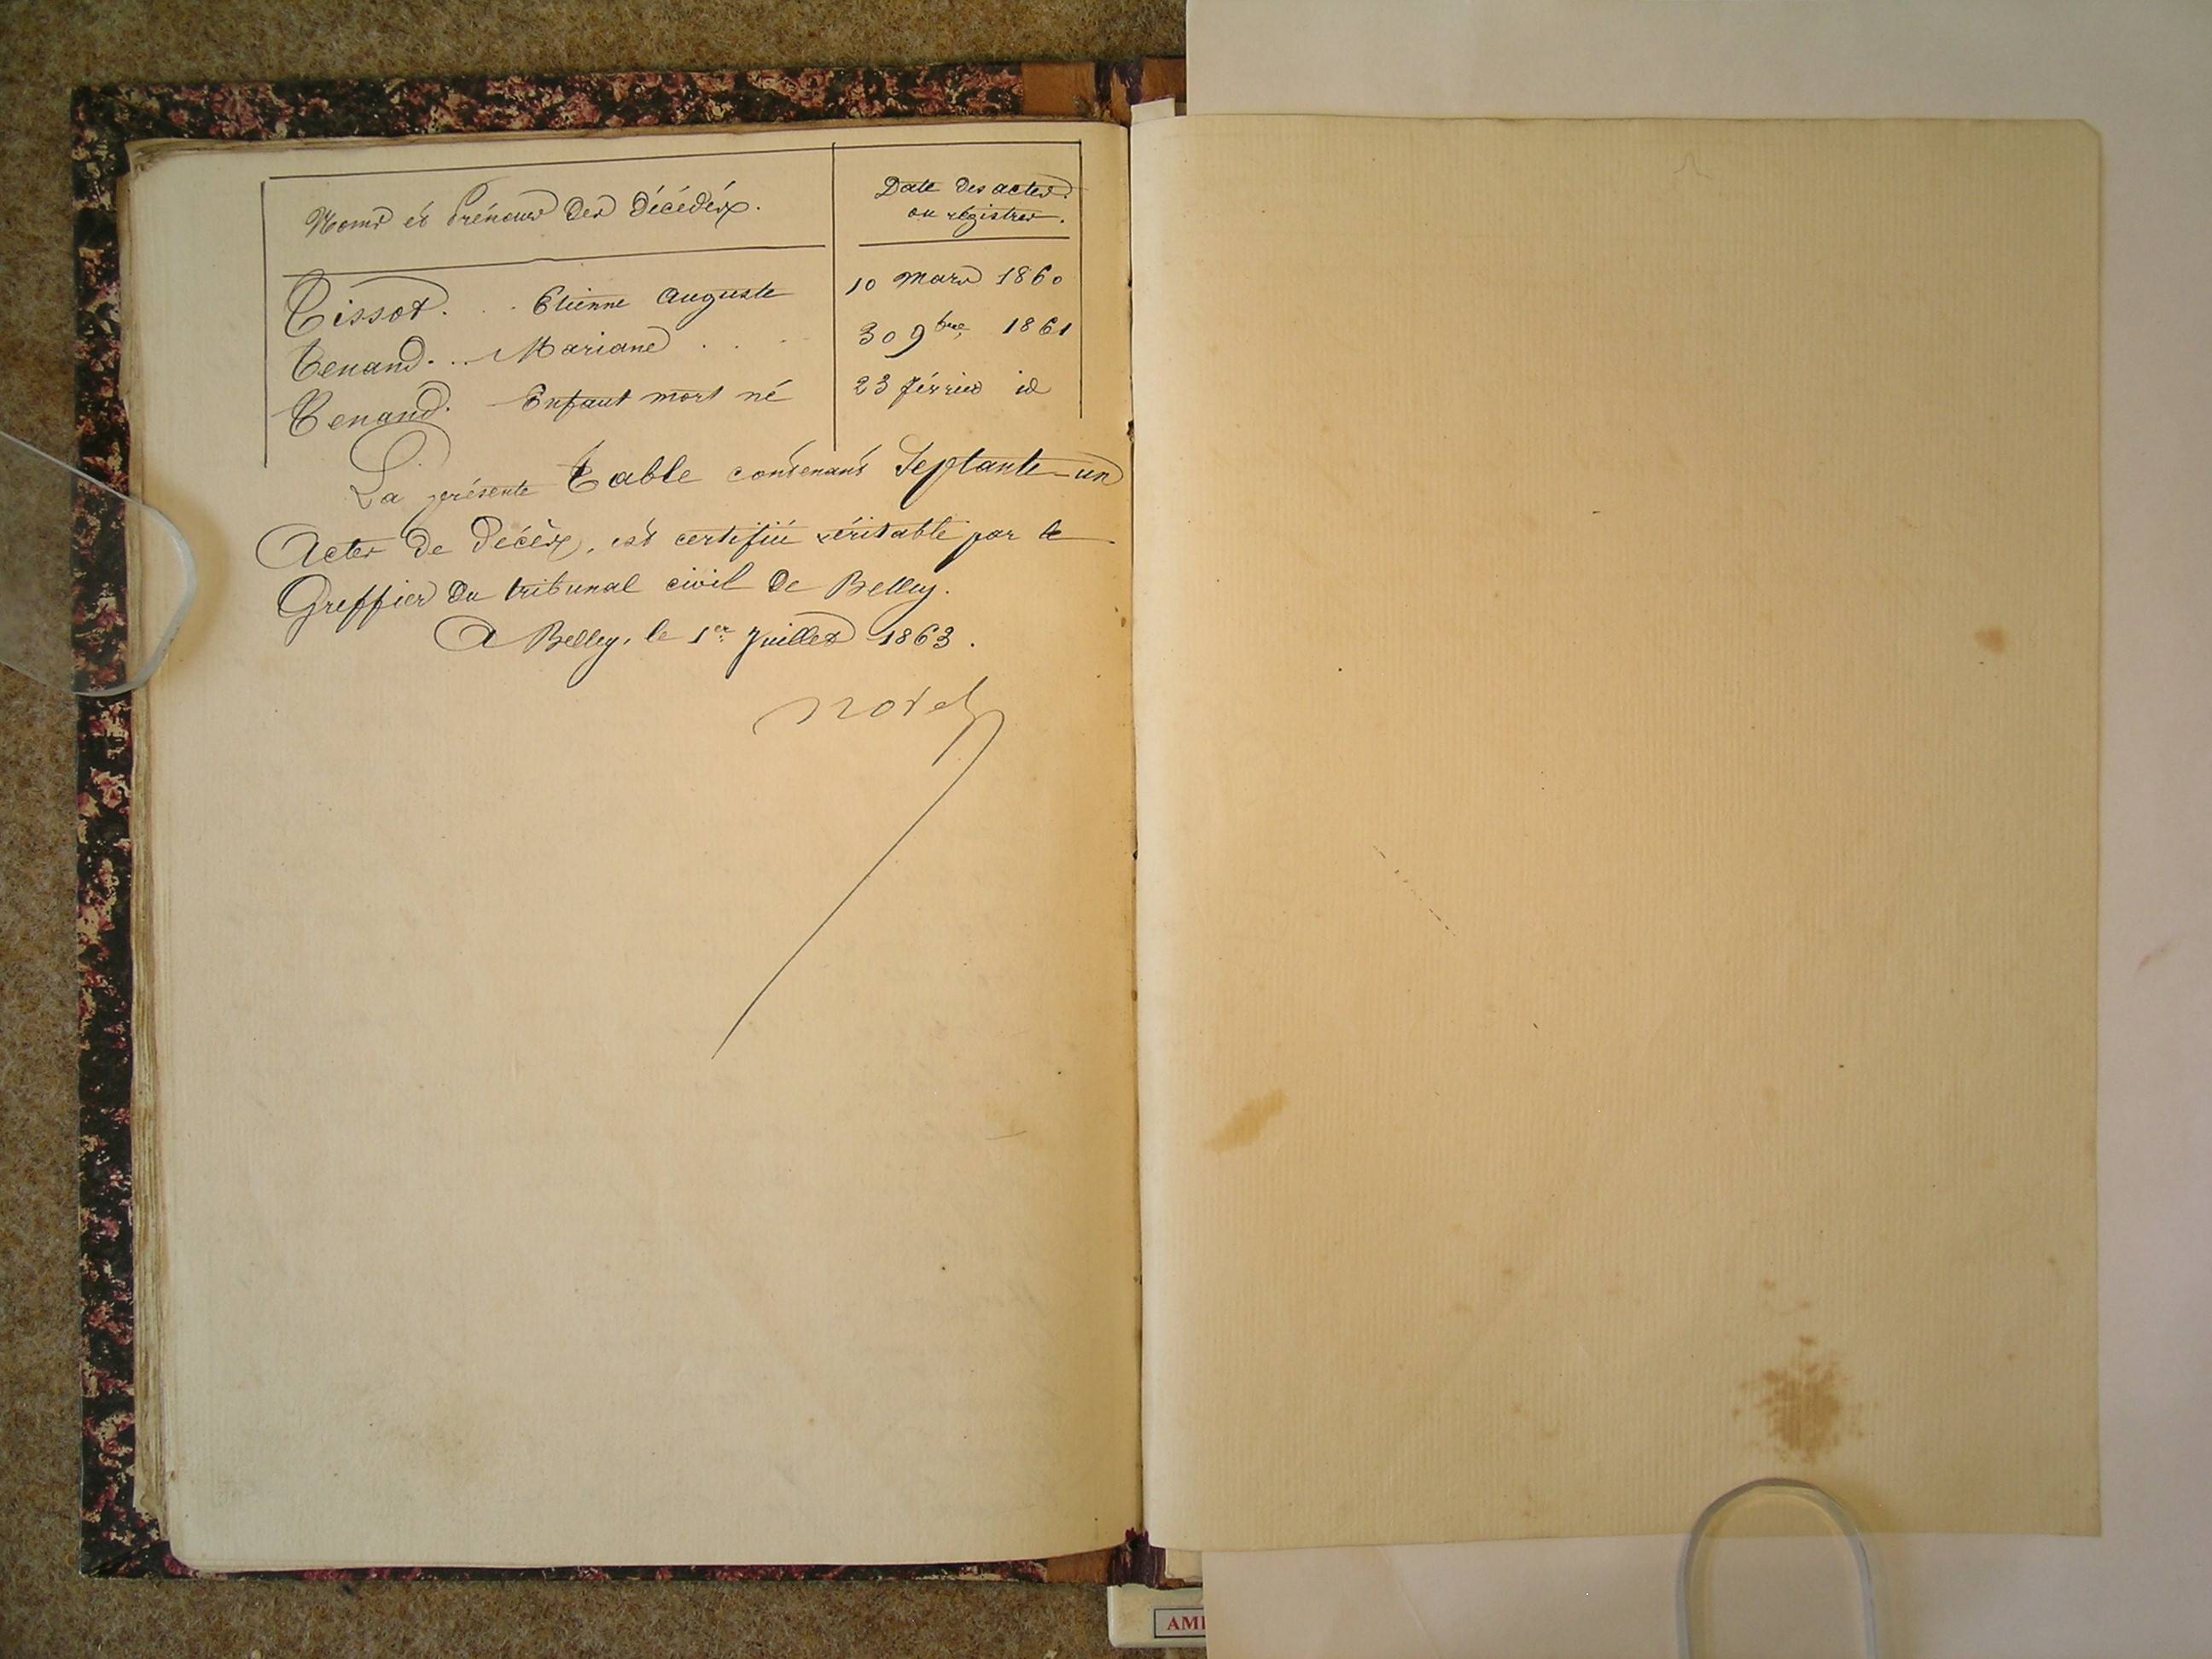 Noms et Prénoms des décédés.
Date des actes
ou régistres.
Tissot. . . Etienne Auguste
10 Mars 1860
Tenand. . . Mariane . . .
30 9bre 1861
Tenand. Enfant mort né
23 février id
La présente Table contenant Septante-un
Actes de décès, est certifiée véritable par le
Greffier du tribunal civil de Belley.
A Belley, le 1er Juillet 1863.
AMI